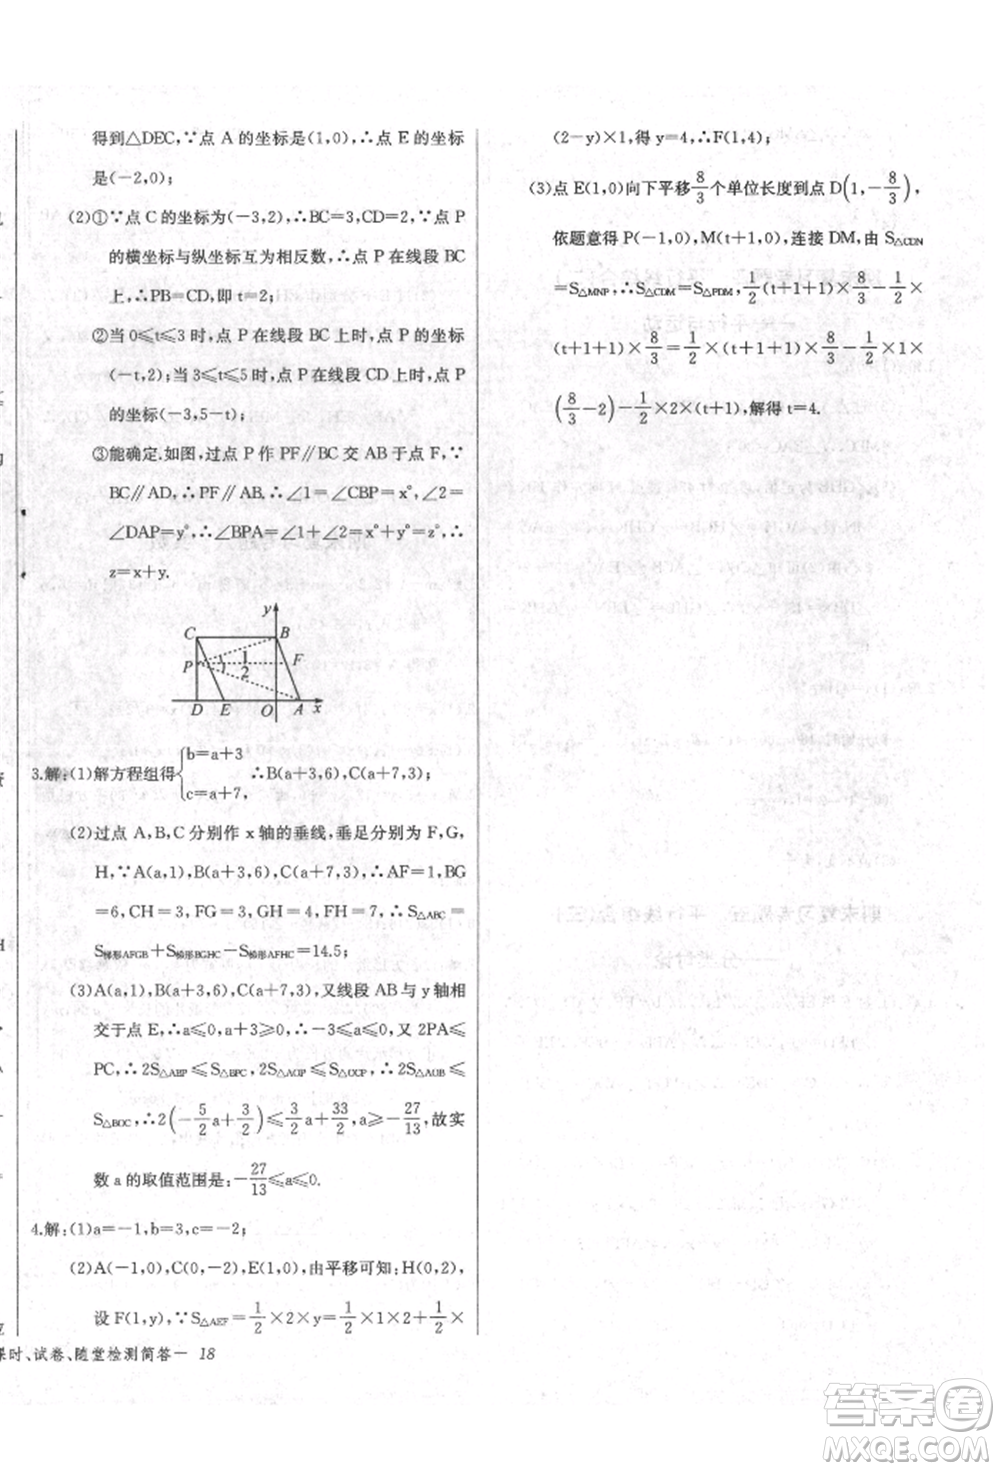 得到△DEC,∵点 A 的坐标是(1,0),∴点 E 的坐标
是(－2,0);
(2)①∵点 C 的坐标为(－3,2),∴BC=3,CD=2,∵点 P
的横坐标与纵坐标互为相反数,∴点 P 在线段 BC
上,∴PB=CD,即 t=2;
②当 0⩽t⩽3 时,点 P 在线段 BC 上时,点 P
(－t,2);当 3⩽t⩽5 时,点 P 在线段 CD 上时,点 P
的坐标(－3,5－t);
③能确定.如图,过点 P 作 PF∥BC 交 AB 于点 F,∵
BC∥AD,∴PF∥AD,∴∠1=∠CBP=x°,∠2=
∠DAP=y°,∴∠BPA=∠1+∠2=x°+y°=z°,∴
z=x+y.
y
C B
P 1 2 F
D E O A x
3.解:(1)解方程组得{b=a+3 c=a+7, ∴B(a+3,6),C(a+7,3);
(2)过点 A,B,C 分别作 x 轴的垂线,垂足分别为 F,G,
H,∵A(a,1),B(a+3,6),C(a+7,3),∴AF=1,BG
=6,CH=3,FG=3,GH=4,FH=7,∴S△ABC=
S梯形AFGB+S梯形BGHC－S梯形AFHC=14.5;
(3)A(a,1),B(a+3,6),C(a+7,3),又线段 AB 与 y 轴相
交于点 E,∴a⩽0,a+3⩾0,∴－3⩽a⩽0,又 2PA⩽
PC,∴2S△AEP⩽S△CEP,2S△AOP⩽S△OCP,∴2S△AOB⩽
S△BOC,∴2(－5/2 a+3/2)⩽3/2 a+33/2,a⩾－27/13,故实
数 a 的取值范围是:－27/13⩽a⩽0.
4.解:(1)a=－1,b=3,c=－2;
(2)A(－1,0),C(0,－2),E(1,0),由平移可知:H(0,2),
设 F(1,y),∵S△AEF=1/2×2×y=1/2×1×2+1/2×
课时、试卷、随堂检测简答— 18
(2－y)×1,得 y=4,∴F(1,4);
(3)点 E(1,0)向下平移8/3个单位长度到点 D(1,－8/3),
依题意得 P(－1,0),M(t+1,0),连接 DM,由 S△CDN
=S△MNP,∴S△CDM=S△PDM,1/2(t+1+1)×8/3=1/2×
(t+1+1)×8/3=1/2×(t+1+1)×8/3－1/2×1×
(8/3－2)－1/2×2×(t+1),解得 t=4.
答案卷
MXQE.COM